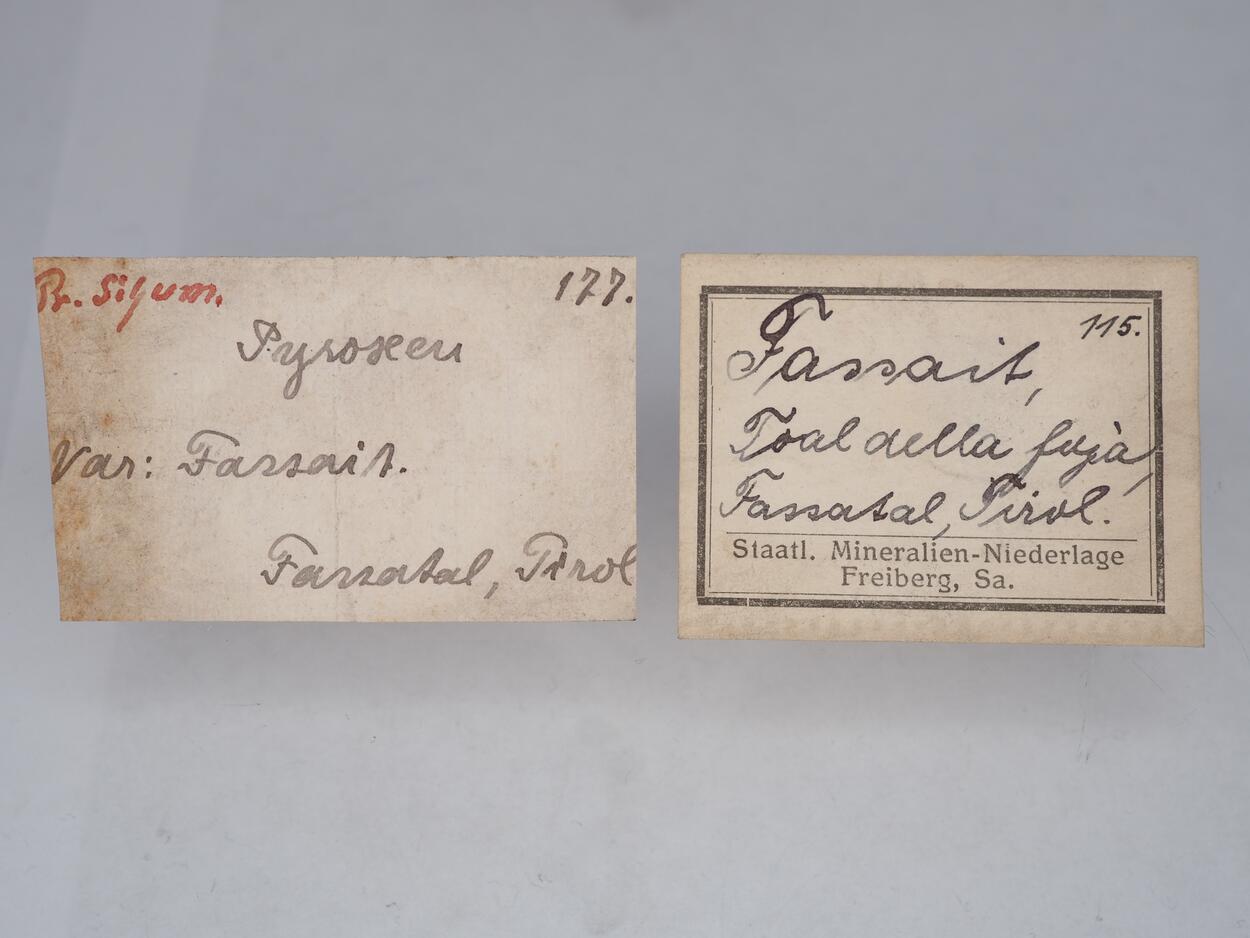 177.
Pyroxen
Var: Fassait.
Fassatal, Tirol
115.
Fassait,
Toal della foja,
Fassatal, Tirol.
Staatl. Mineralien-Niederlage
Freiberg, Sa.